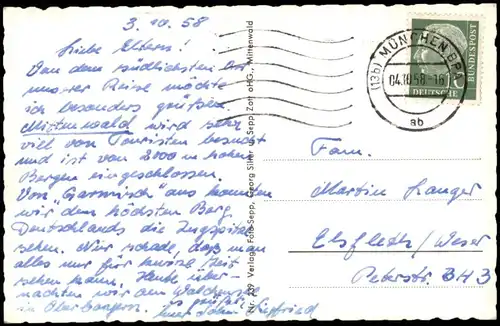 3. 10. 58
Liebe Eltern!
Von dem südlichsten Ort
unserer Reise möchte
ich besonders grüßen.
Mittenwald wird sehr
viel von Touristen besucht
und ist von 2000 m hohen
Bergen eingeschlossen.
Von "Garmisch" aus konnten
wir dem höchsten Berg
Deutschlands die Zugspitze
sehen. Nur schade, daß man
alles nur für kurze Zeit
sehen kann. Heute über-
nachten wir am Walchensee
in Oberbayern. Es grüßt
Euer Sohn Siegfried
Nr. 239 Verlag: Foto-Sepp, Georg Silier & Sepp Zott oHG., Mittenwald
(13b) MÜNCHEN BP
04.10.58-16
ab
DEUTSCHE
BUNDESPOST
10
Fam.
Martin Langer
Elsfleth / Weser
Peterstr. 343